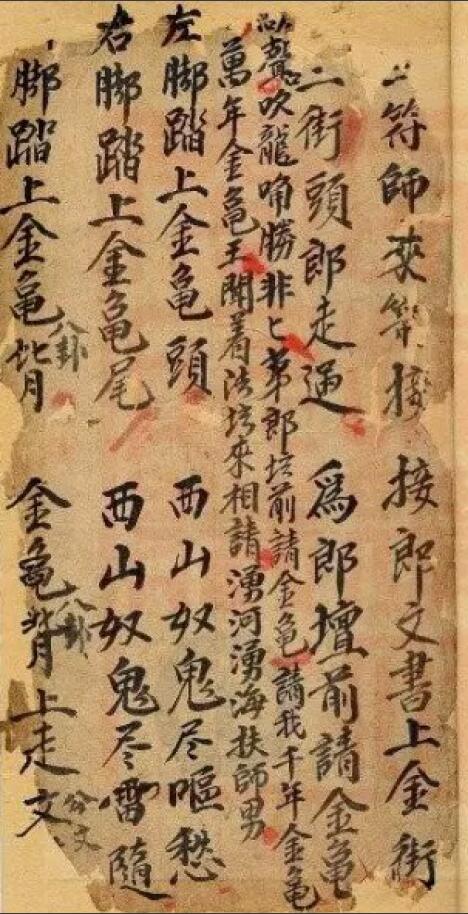 二符師來 接郎文書上金街
二街頭郎走過 為郎壇前請金龜
聲吹龍 勝非匕弟郎坛前請金龜請我千年金龜
萬年金龜王開着法坛來相請湧河湧海扶師男
左脚踏上金龜頭 西山奴鬼尽嘔愁
右脚踏上金龜尾 西山奴鬼尽雷隨
脚踏上金龜背 金龜背上走文
八卦
八卦
分文